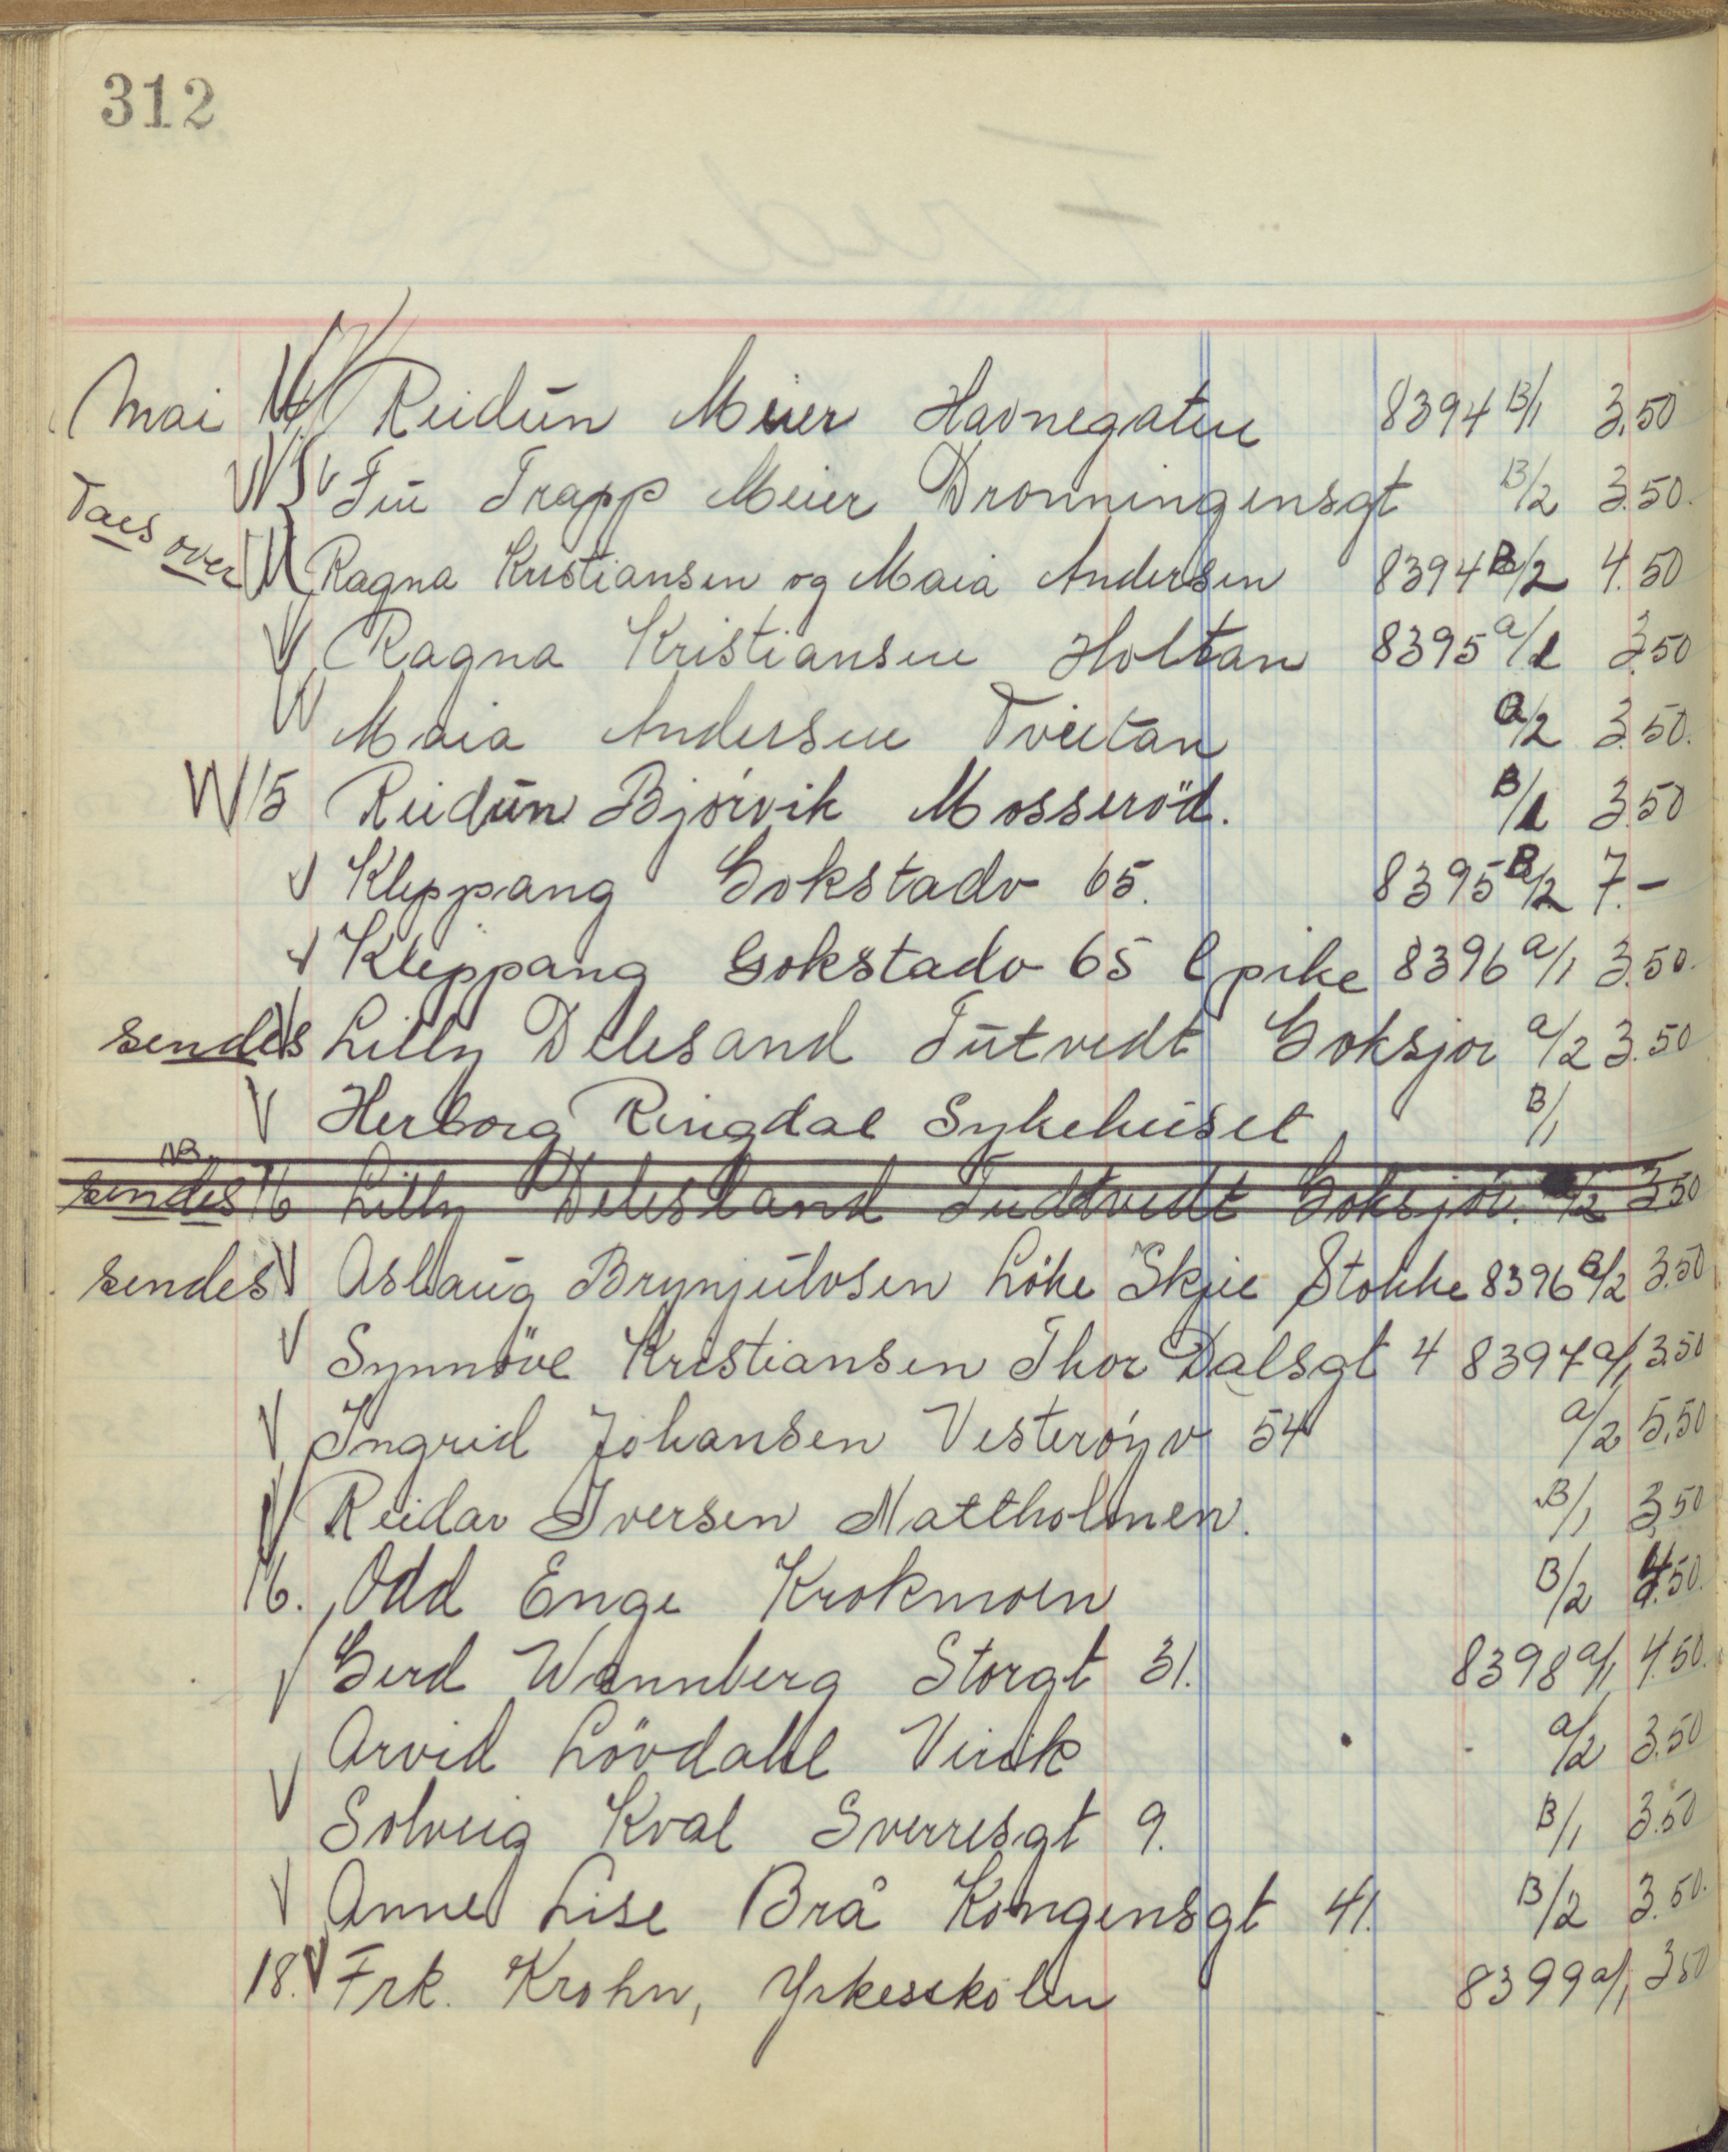 312
Mai 14 Reidun Meier Havnegaten 8394 B/1 3.50
Fru Trapp Meier Dronningensgt B/2 3.50.
Taes over Ragna Kristiansen og Maia Andersen 8394 B/2 4.50
Ragna Kristiansen Holtan 8395 a/1 3.50
Maia Andersen Tveitan a/2 3.50.
15 Reidun Bjørvik Mosserød. B/1 3.50
Kleppang Gokstadv 65. 8395 B/2 7.-
Kleppang Gokstadv 65 l pike 8396 a/1 3.50.
sendes Lilly Delesand Tutvedt Goksjør a/2 3.50
Herborg Ringdal Sykehuset B/1
NB.
sendes 16 Lilly Delesland Tudtvedt Goksjør. /2 3.50
sendes Aslaug Brynjulvsen Løke Skjee Stokke 8396 B/2 3.50
Synnøve Kristiansen Thor Dalsgt 4 8397 a/1 3.50
Ingrid Johansen Vesterøyv 54 a/2 5.50
Reidar Iversen Nattholmen. B/1 3.50
16. Odd Enge Krokmoen B/2 4.50.
Gerd Wennberg Storgt 31. 8398 a/1 4.50.
Arvid Løvdahl Virik a/2 3.50
Solveig Kval Sverresgt 9. B/1 3.50
Anne Lise Brå Kongensgt 41. B/2 3.50.
18. Frk. Krohn, Yrkesskolen 8399 a/1 3.50